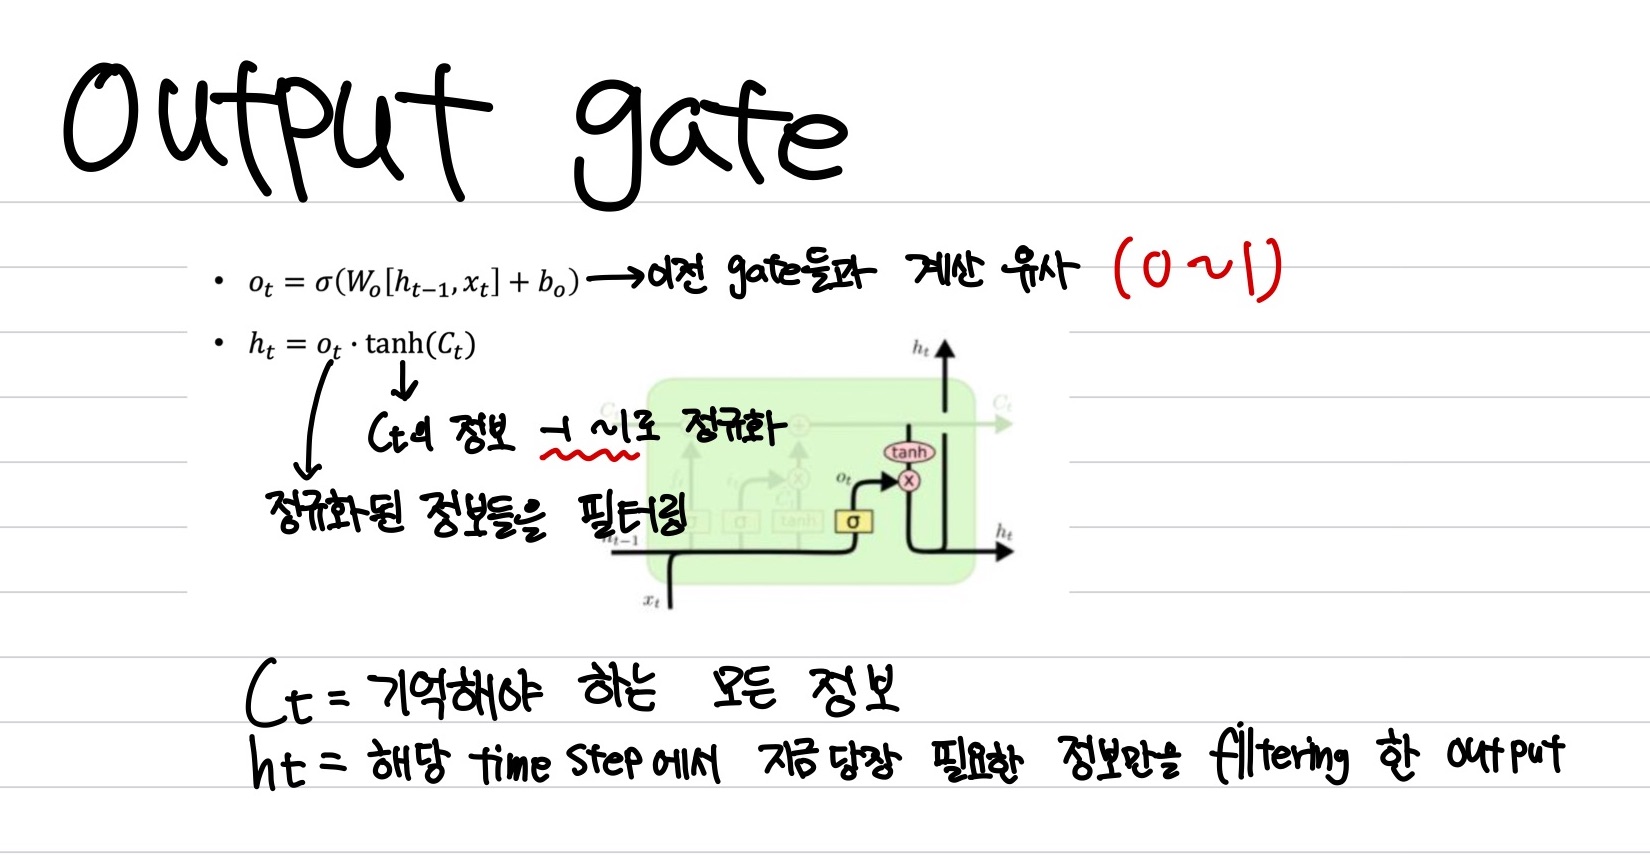 Output gate
• o_t = σ(W_o[h_{t−1}, x_t] + b_o) → 이전 gate들과 계산 유사 (0 ~ 1)
• h_t = o_t · tanh(C_t)
Ct의 정보 -1 ~ 1로 정규화
정규화된 정보들을 필터링
h_t
C_t
tanh
o_t
×
σ
tanh
σ
h_t
h_{t−1}
x_t
Ct = 기억해야 하는 모든 정보
ht = 해당 time step에서 지금 당장 필요한 정보만을 filtering 한 output